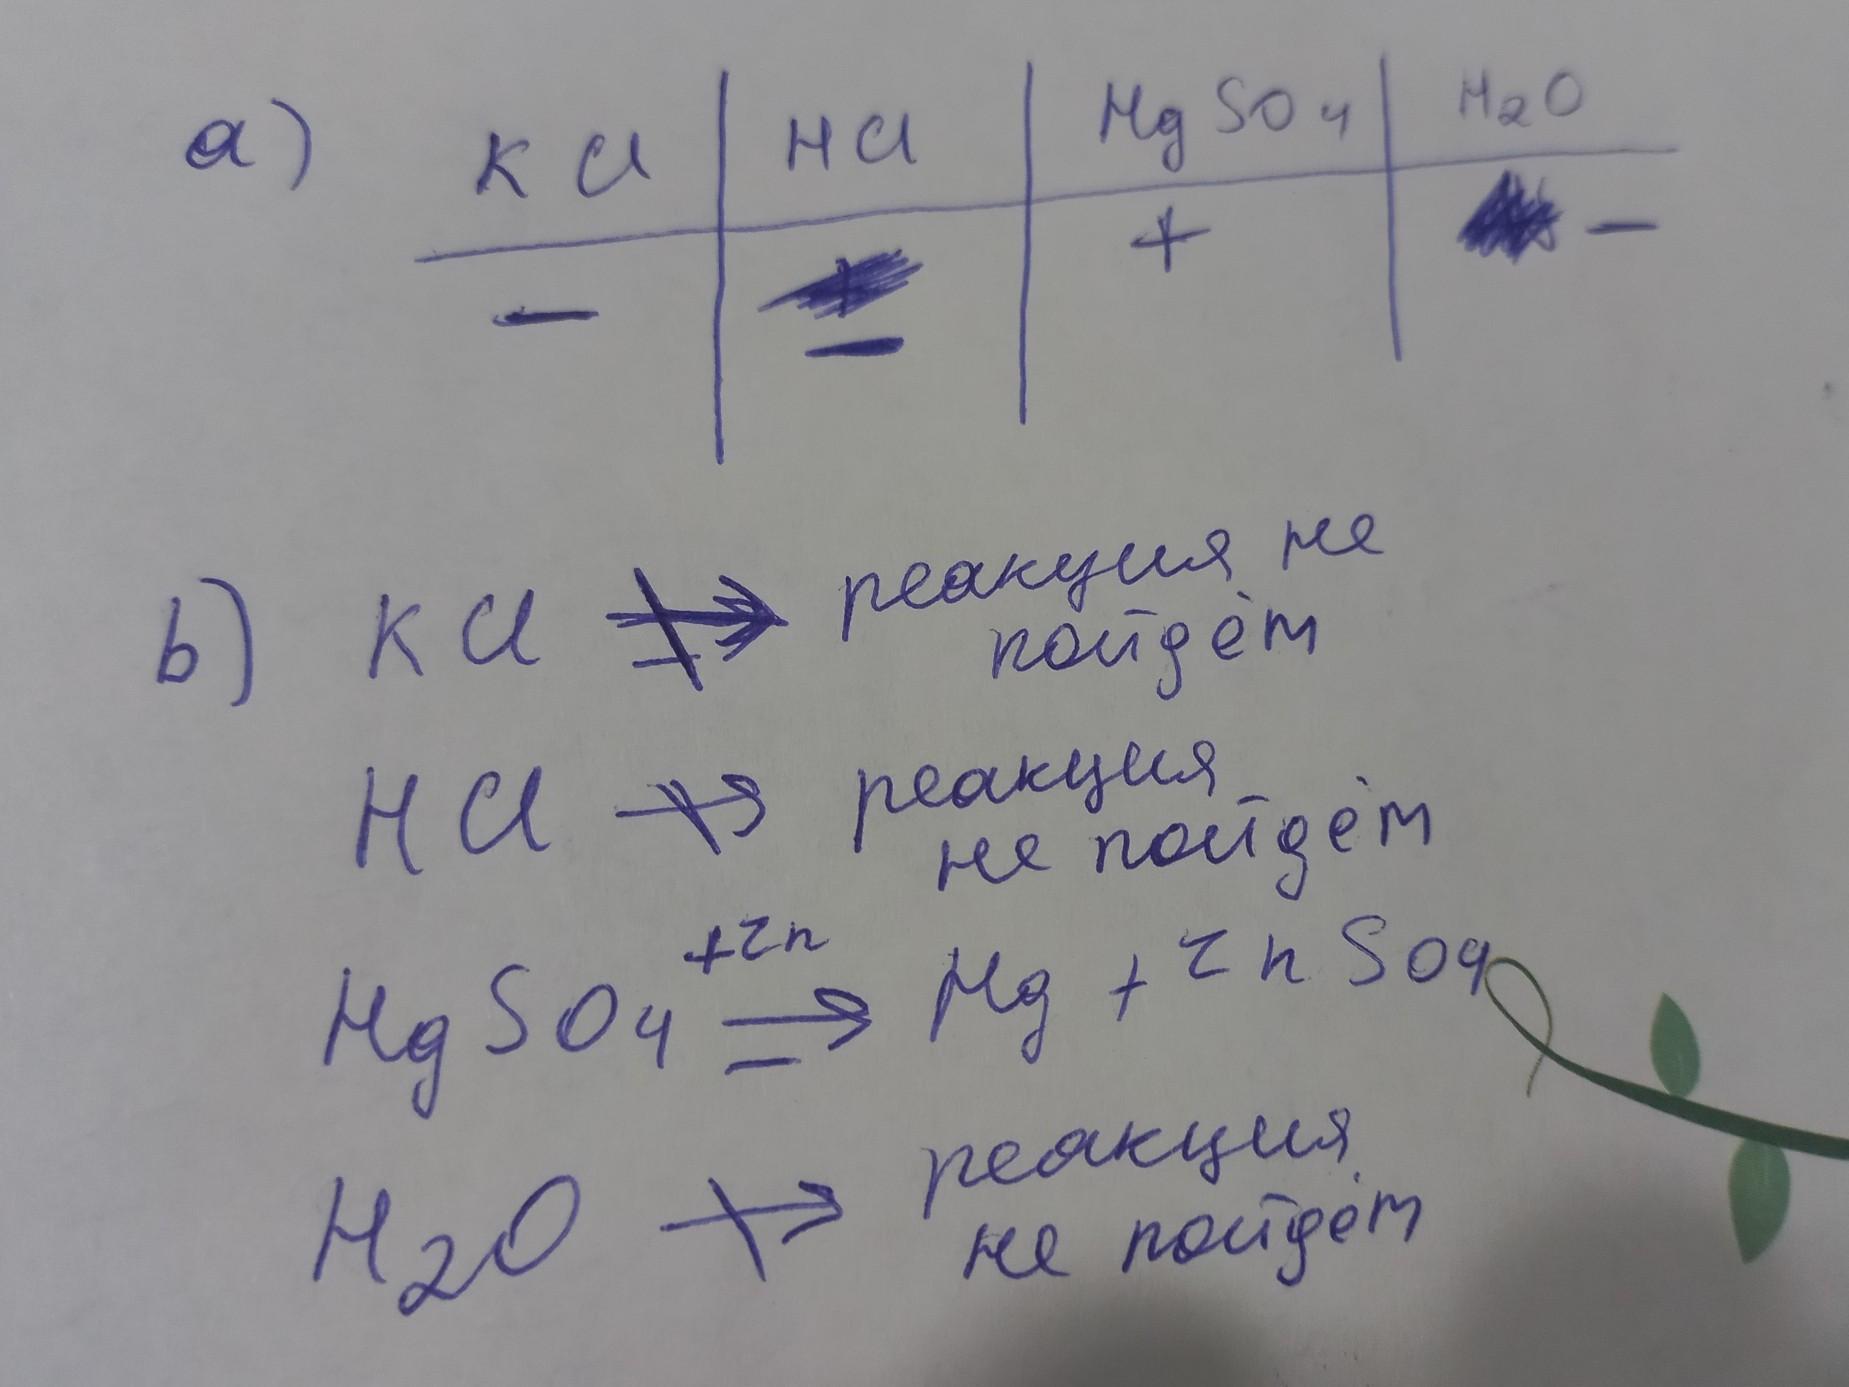 a) KCl | HCl | MgSO4 | H2O
− | − | + | −
b) KCl ⇏ реакция не
пойдём
HCl ↛ реакция
не пойдём
MgSO4 +Zn ⇒ Mg + ZnSO4
H2O ↛ реакция
не пойдём